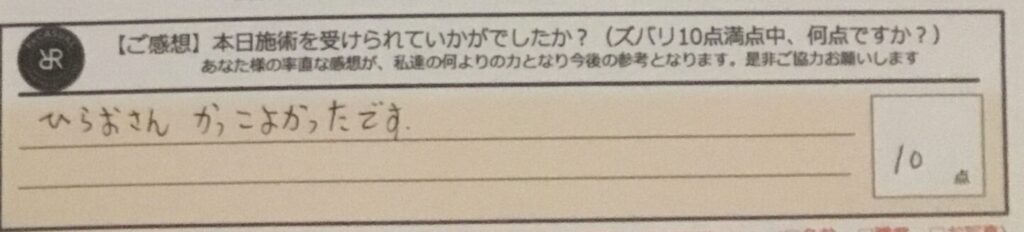 【ご感想】本日施術を受けられていかがでしたか？（ズバリ10点満点中、何点ですか？）
あなた様の率直な感想が、私達の何よりの力となり今後の参考となります。是非ご協力お願いします
ひらおさん かっこよかったです.
10
点